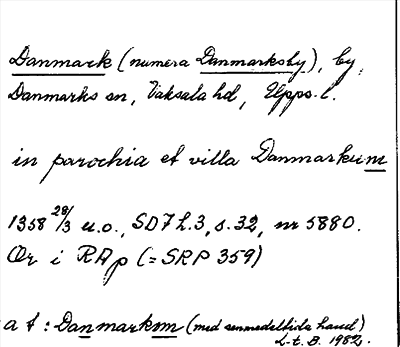 Danmark (numera Danmarksby), by,
Danmarks sn, Vaksala hd, Upps. l.
in parochia et villa Danmarkum
1358 28/3 u.o., SD 7 h.3, s.32, nr 5880.
Or i RAp (= SRP 359)
a t : Danmarkom (med senmedeltida hand)
L-t. B. 1982.